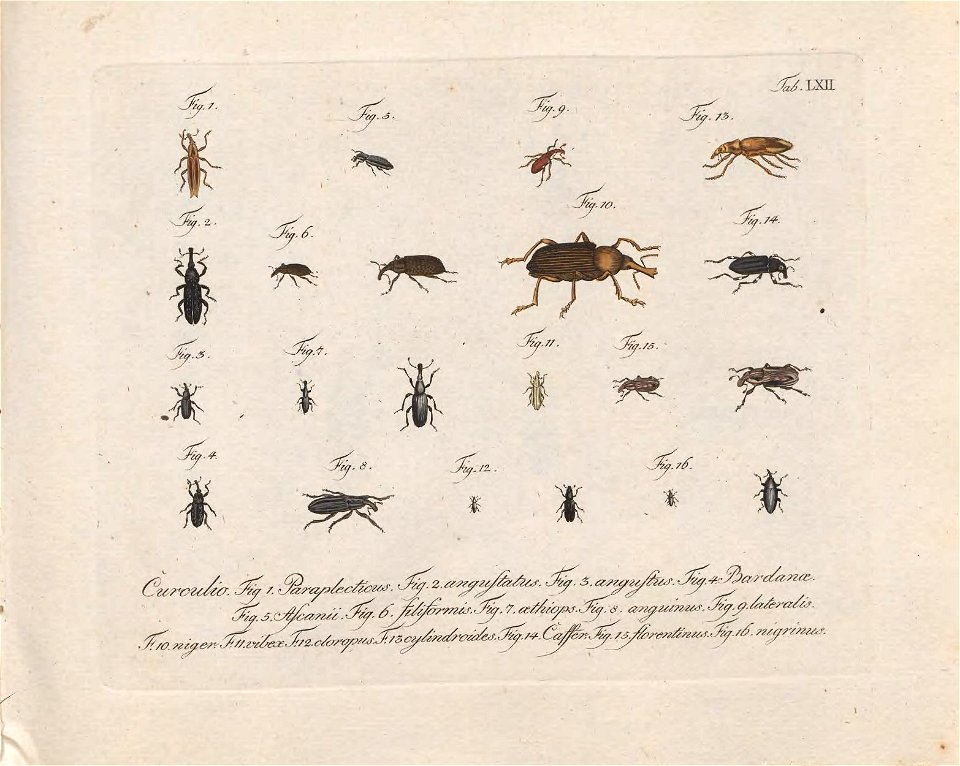 Tab. LXII
Fig. 1.
Fig. 5.
Fig. 9.
Fig. 13.
Fig. 2.
Fig. 6.
Fig. 10.
Fig. 14.
Fig. 3.
Fig. 7.
Fig. 11.
Fig. 15.
Fig. 4.
Fig. 8.
Fig. 12.
Fig. 16.
Curculio. Fig 1. Paraplecticus. Fig. 2. anguſtatus. Fig. 3. anguſtus. Fig. 4. Bardanæ.
Fig. 5. Aſcanii. Fig. 6. filiformis. Fig. 7. æthiops. Fig. 8. anguinus. Fig. 9. lateralis.
F. 10. niger. F. 11. vibex. F. 12. cloropus. F. 13 cylindroides. Fig. 14. Caffer. Fig. 15. florentinus. Fig. 16. nigrinus.